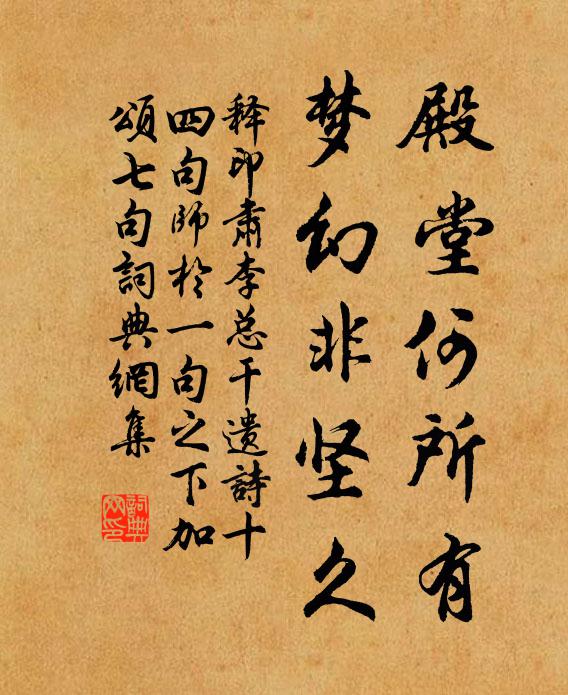 殿堂何所有
梦幻非坚久
释印肃李总干遗詩十
四句師於一句之下加
頌七句詞典網集
詞典
网印